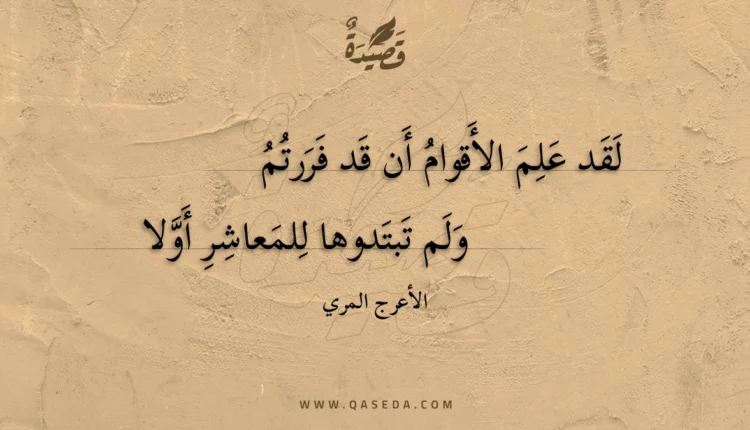 قَصِيدَةٌ
لَقَد عَلِمَ الأَقوامُ أَن قَد فَرَرتُمُ
وَلَم تَبتَدوها لِلمَعاشِرِ أَوَّلا
الأعرج المري
WWW.QASEDA.COM